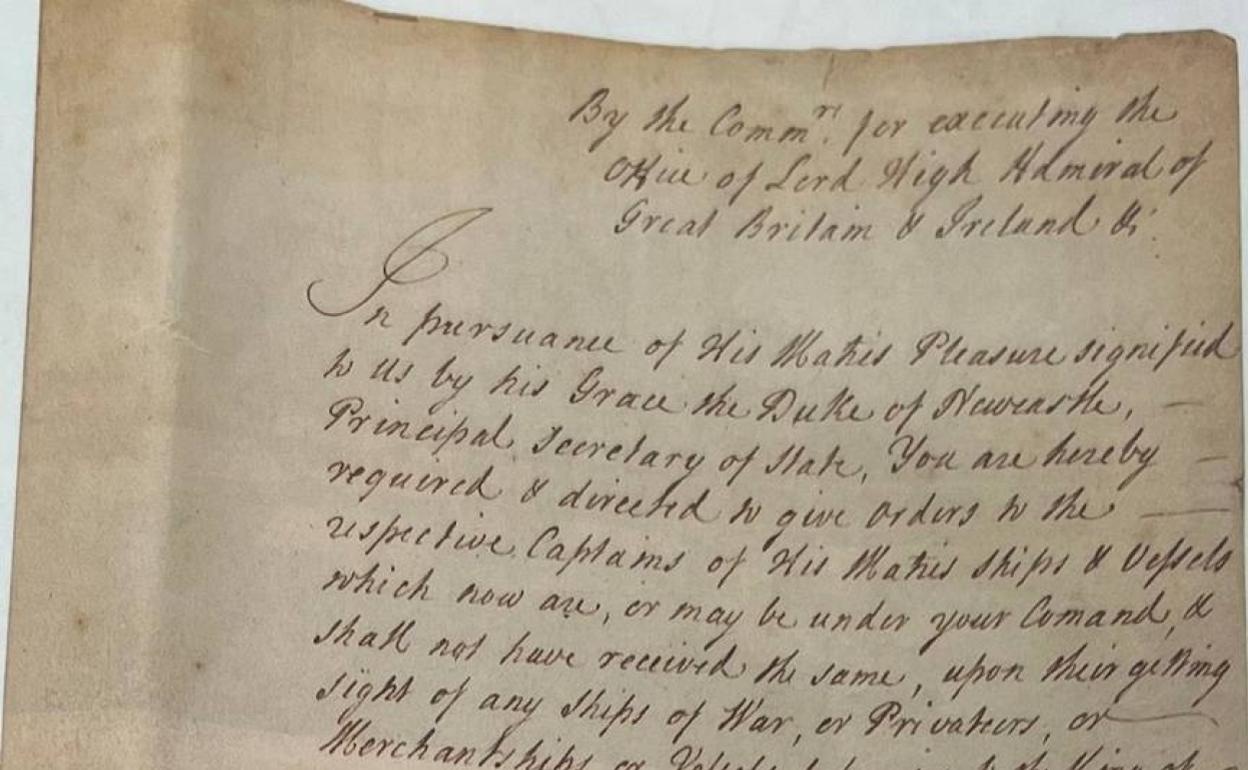 By the Commrs. for executing the
Office of Lord High Admiral of
Great Britain & Ireland &c.
In pursuance of His Maties Pleasure signified
to us by his Grace the Duke of Newcastle, —
Principal Secretary of State, You are hereby —
required & directed to give Orders to the —
respective Captains of His Maties Ships & Vessels
which now are, or may be under your Comand, &
shall not have received the same, upon their getting
sight of any Ships of War, or Privateers, or
Merchantships or Vessels King of